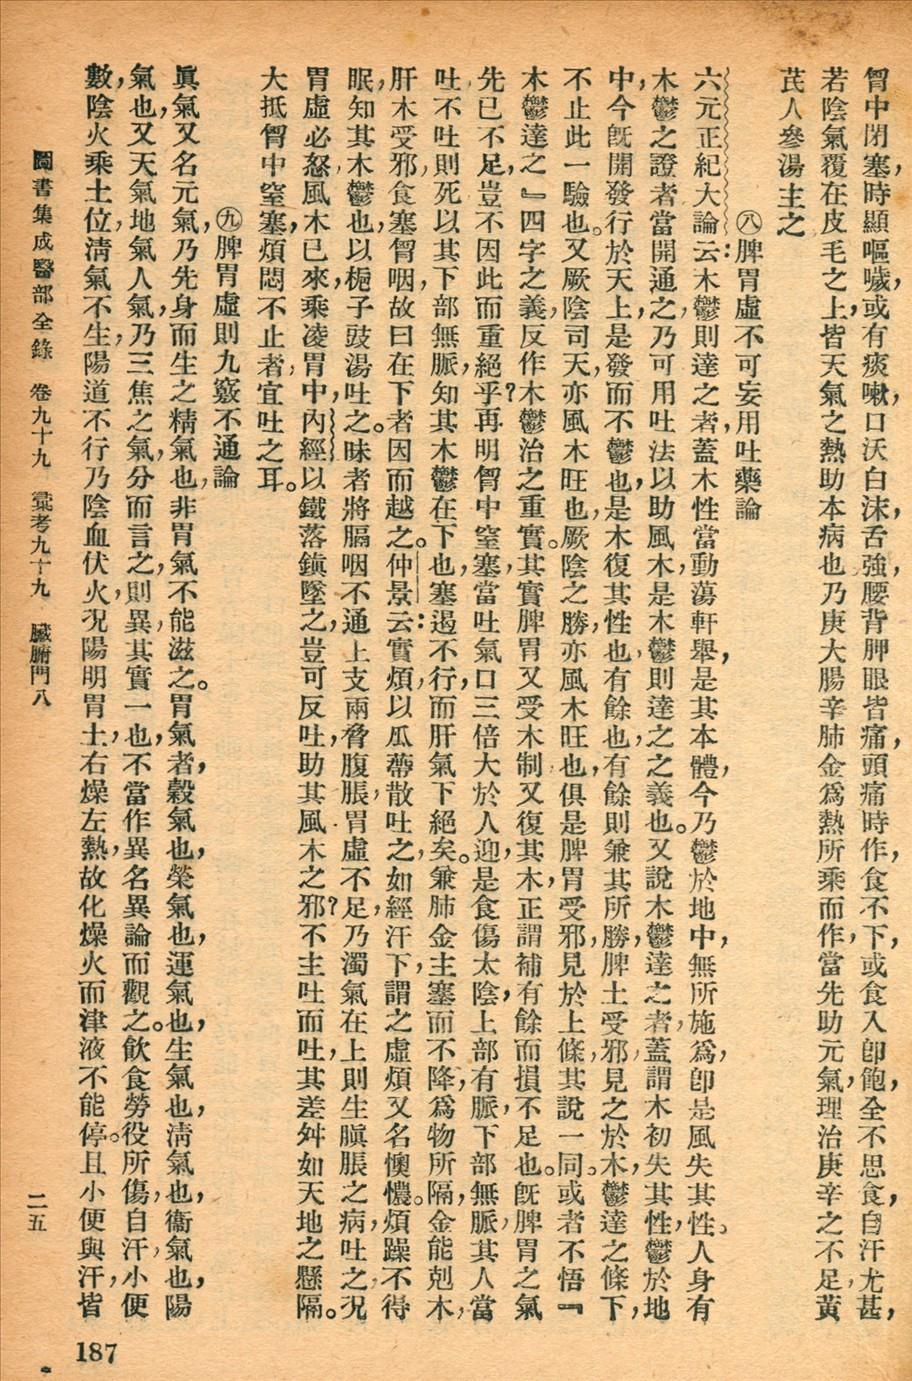 胷中閉塞，時顯嘔噦，或有痰嗽，口沃白沫，舌強，腰背胛眼皆痛，頭痛時作，食不下，或食入卽飽，全不思食，自汗尤甚，
若陰氣覆在皮毛之上，皆天氣之熱助本病也，乃庚大腸辛肺金爲熱所乘而作，當先助元氣，理治庚辛之不足，黃
芪人參湯主之
㊇脾胃虛不可妄用吐藥論
六元正紀大論云：木鬱則達之者，蓋木性當動蕩軒舉，是其本體，今乃鬱於地中，無所施爲，卽是風失其性。人身有
木鬱之證者，當開通之，乃可用吐法以助風木，是木鬱則達之之義也。又說木鬱達之者，蓋謂木初失其性，鬱於地
中，今旣開發行於天上，是發而不鬱也，是木復其性也，有餘也，有餘則兼其所勝，脾土受邪，見之於木鬱達之條下，
不止此一驗也。又厥陰司天，亦風木旺也，厥陰之勝，亦風木旺也，俱是脾胃受邪，見於上條，其說一同。或者不悟『
木鬱達之』四字之義，反作木鬱治之重實。其實脾胃又受木制，又復其木，正謂補有餘而損不足也。旣脾胃之氣
先已不足，豈不因此而重絕乎？再明胷中窒塞，當吐氣口三倍大於人迎，是食傷太陰，上部有脈，下部無脈，其人當
吐不吐則死，以其下部無脈，知其木鬱在下也，塞遏不行，而肝氣下絕矣。兼肺金主塞而不降，爲物所隔，金能剋木，
肝木受邪，食塞胷咽，故曰在下者因而越之。仲景云：實煩以瓜蒂散吐之，如經汗下，謂之虛煩，又名懊憹。煩躁不得
眠，知其木鬱也，以梔子豉湯吐之。昧者將膈咽不通，上支兩脅，腹脹，胃虛不足，乃濁氣在上則生䐜脹之病，吐之，況
胃虛必怒，風木已來乘凌胃中，內經以鐵落鎭墜之，豈可反吐，助其風木之邪？不主吐而吐，其差舛如天地之懸隔。
大抵胷中窒塞，煩悶不止者，宜吐之耳。
㊈脾胃虛則九竅不通論
眞氣又名元氣，乃先身而生之精氣也，非胃氣不能滋之。胃氣者，穀氣也，榮氣也，運氣也，生氣也，淸氣也，衞氣也，陽
氣也，又天氣地氣人氣，乃三焦之氣，分而言之，則異，其實一也，不當作異名異論而觀之。飮食勞役所傷，自汗，小便
數，陰火乘土位，淸氣不生，陽道不行，乃陰血伏火，況陽明胃土，右燥左熱，故化燥火而津液不能停。且小便與汗，皆
圖書集成醫部全錄　卷九十九　彙考九十九　臟腑門八　二五
187